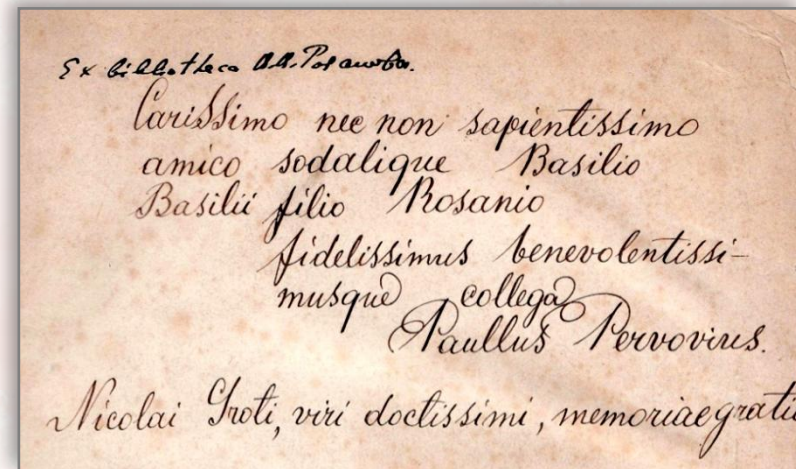 Ex bibliotheca В.В. Розанова.
Carissimo nec non sapientissimo
amico sodalique Basilio
Basilii filio Rosanio
fidelissimus benevolentissi-
musque collega
Paullus Pervovius.
Nicolai Groti, viri doctissimi, memoriae grati